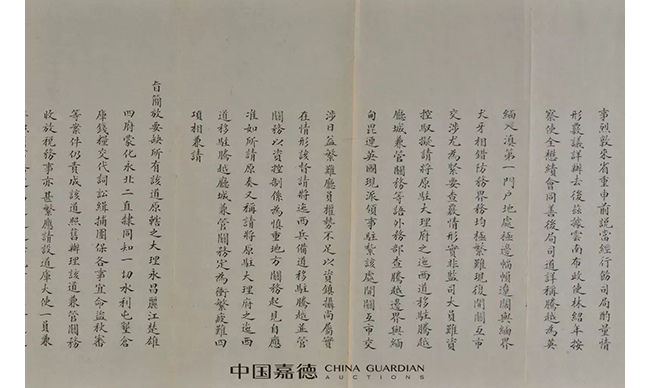 事烈敦來省重申前說當經行飭司局酌量情
形覈議詳辦去後茲據雲南布政使林紹年按
察使全懋績會同善後局司道詳稱騰越為英
緬入滇第一門戶地處極邊幅幀遼闊與緬界
犬牙相錯防務界務均極繁難現復開關互市
交涉尤為緊要查覈情形實非監司大員難資
控馭擬請將原駐大理府之迤西道移駐騰越
廳城兼管關務等語外務部查騰越邊界與緬
甸毘連英國現派領事駐紮該處開關互市交
涉日益繁難廳員權勢不足以資鎮攝尚屬實
在情形該督請將迤西兵備道移駐騰越並管
關務以資控制係為慎重地方關務起見自應
准如所請原奏又稱請將原駐大理府之迤西
道移駐騰越廳城兼管關務定為衝繁疲難四
項相兼請
旨簡放要缺所有該道原轄之大理永昌麗江楚雄
四府蒙化永北二直隸同知一切水利屯墾倉
庫錢糧交代詞訟緝捕團保各事宜命盜秋審
等案件仍責成該道照舊辦理該道兼管關務
收放稅務事亦甚繁應請設道庫大使一員兼
中国嘉德 CHINA GUARDIAN
AUCTIONS